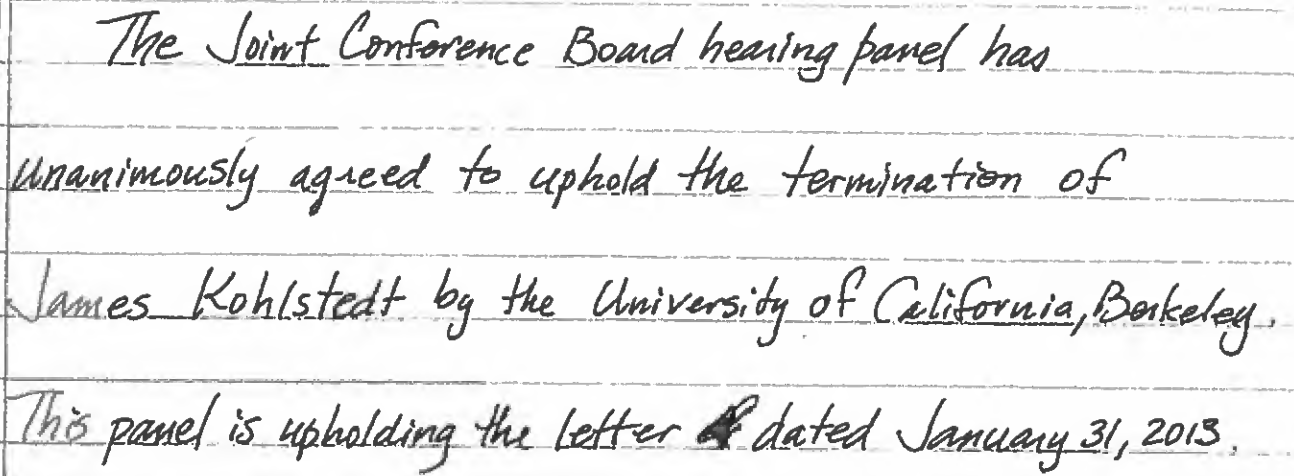 The Joint Conference Board hearing panel has
unanimously agreed to uphold the termination of
James Kohlstedt by the University of California, Berkeley.
This panel is upholding the letter dated January 31, 2013.